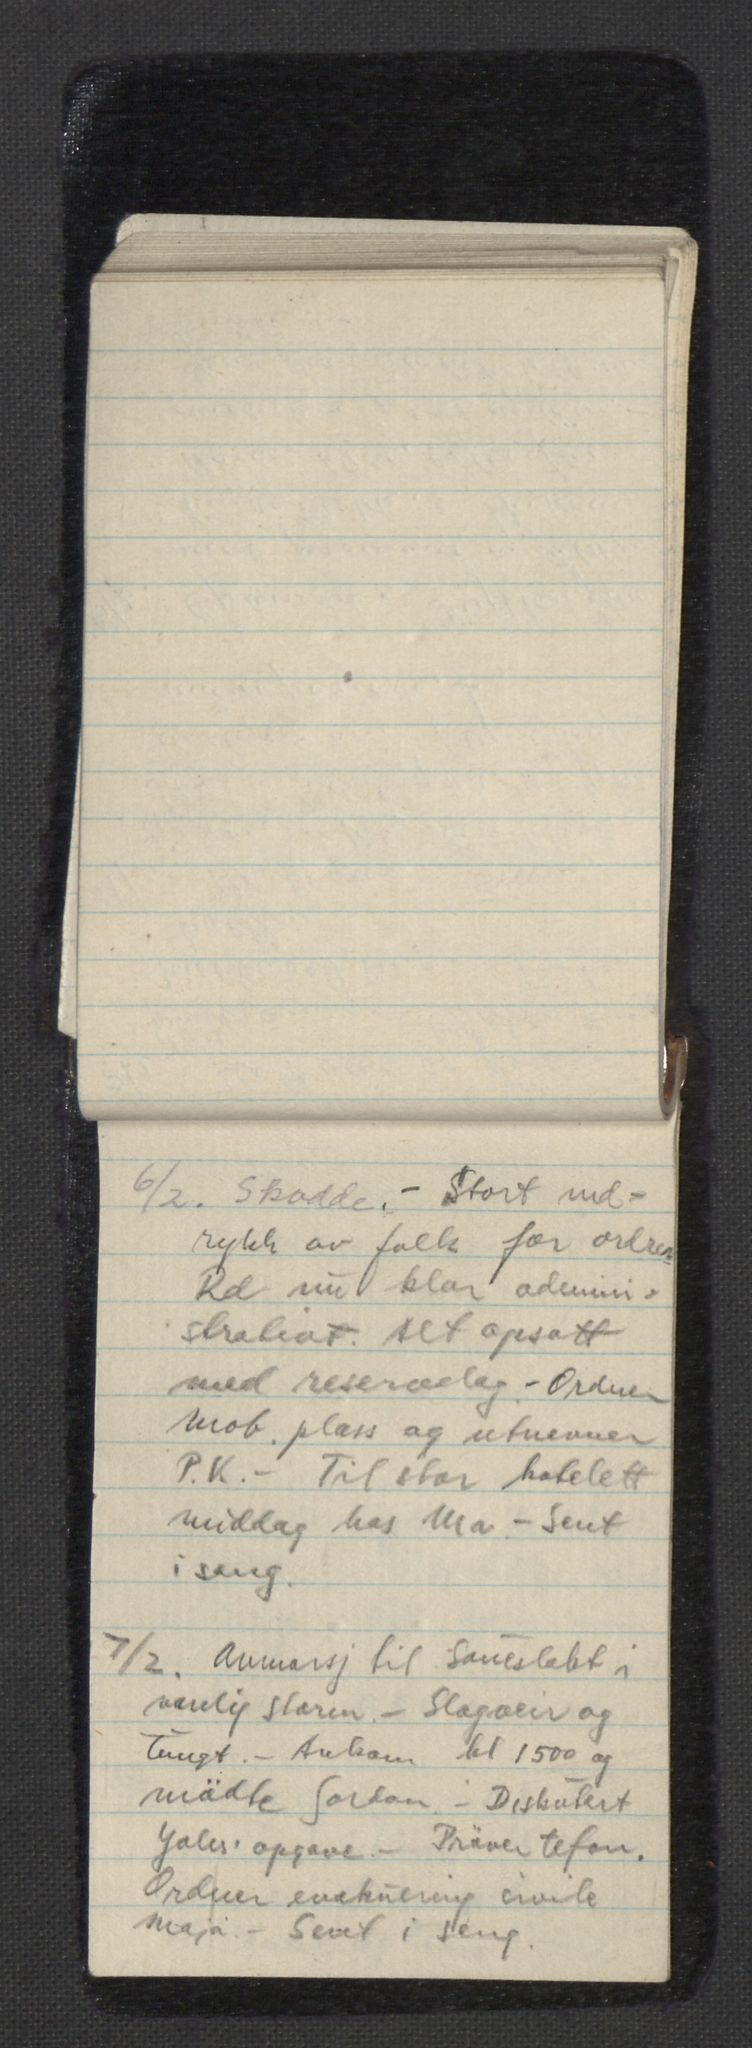 6/2. Skodde. - Stort ind-
rykk av folk før ordren
Rd nu klar admini-
strativt. Alt opsatt
med reservelag. - Ordner
mob. plass og utnevner
P.K. - Til stor kotelett
middag hos Ma - Sent
i seng.
7/2. Anmarsj til Saueslakt i
vanlig storm. - Slagveir og
tungt. - Ankom kl 1500 og
mødte Gordon. - Diskutert
opgave - Prøver tefon.
Ordner evakuering civile
Maja. - Sent i seng.